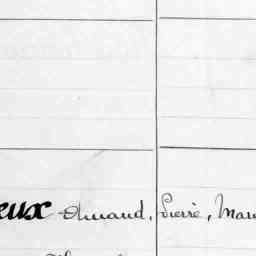 eux Armand, Pierre, Mar